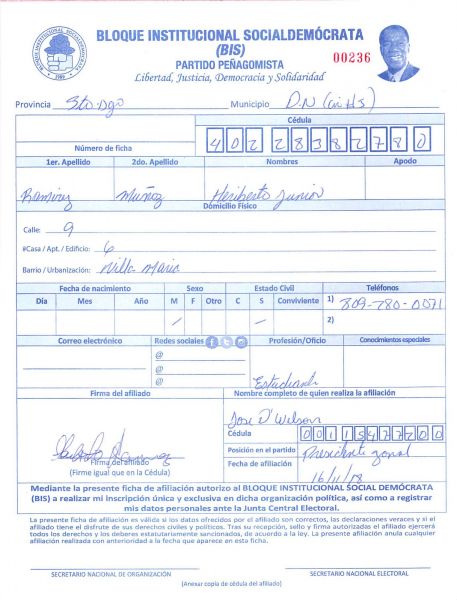 BLOQUE INSTITUCIONAL SOCIALDEMÓCRATA
(BIS)
00236
PARTIDO PEÑAGOMISTA
Libertad, Justicia, Democracia y Solidaridad
Provincia Sto. Dgo Municipio D.N
Cédula
Número de ficha 402 2838278 0
1er. Apellido 2do. Apellido Nombres Apodo
Ramirez Muñoz Heriberto Junior
Domicilio Físico
Calle: 9
#Casa / Apt. / Edificio: 6
Barrio / Urbanización: Villa Maria
Fecha de nacimiento Sexo Estado Civil Teléfonos
Día Mes Año M F Otro C S Conviviente 1) 809-780-0071
/ / 2)
Correo electrónico Redes sociales Profesión/Oficio Conocimientos especiales
@
@
@ Estudiante
Firma del afiliado Nombre completo de quien realiza la afiliación
Jose D' Wilson
Cédula 001 1547720 0
Posición en el partido Presidente zonal
Firma del afiliado
(Firme igual que en la Cédula)
Fecha de afiliación 16/11/18
Mediante la presente ficha de afiliación autorizo al BLOQUE INSTITUCIONAL SOCIAL DEMÓCRATA
(BIS) a realizar mi inscripción única y exclusiva en dicha organización política, así como a registrar
mis datos personales ante la Junta Central Electoral.
La presente ficha de afiliación es válida si los datos ofrecidos por el afiliado son correctos, las declaraciones veraces y si el
afiliado tiene el disfrute de sus derechos civiles y políticos. Tras su recepción, sello y firma autorizadas el afiliado ejercerá
todos los derechos y los deberes estatutariamente sancionados, de acuerdo a la ley. La presente afiliación anula cualquier
afiliación realizada con anterioridad a la fecha que aparece en esta ficha.
SECRETARIO NACIONAL DE ORGANIZACIÓN SECRETARIO NACIONAL ELECTORAL
(Anexar copia de cédula del afiliado)